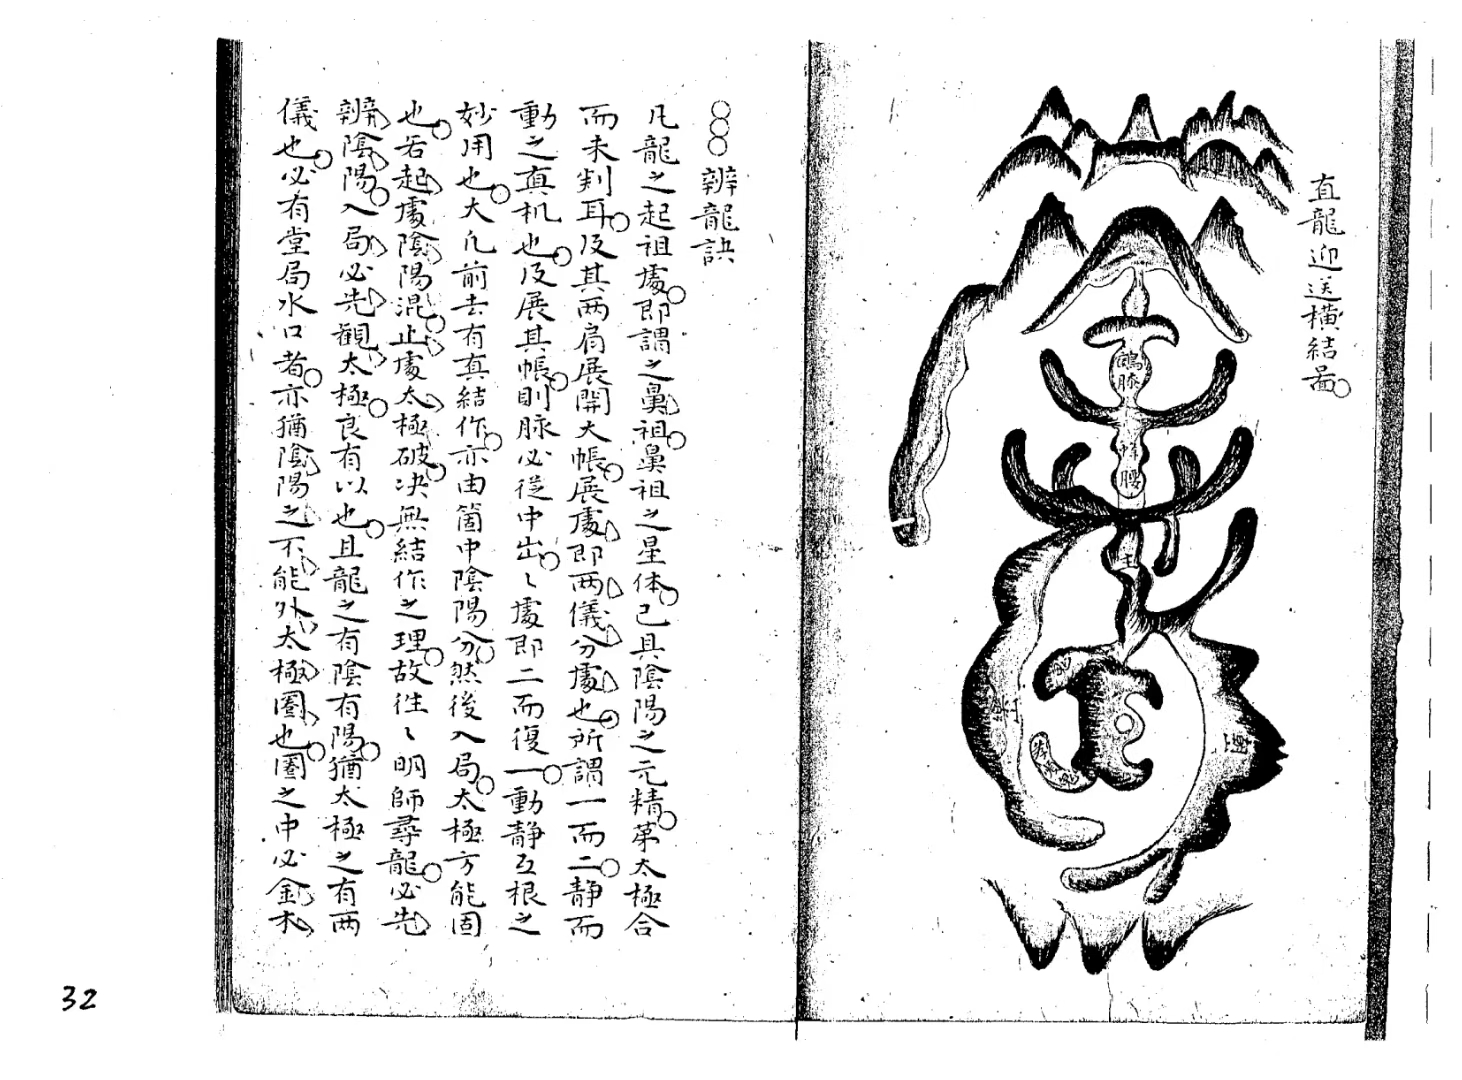 直龍迎送橫結啚
鶴膝
腰
辨龍訣
凡龍之起祖處即謂之鼻祖鼻祖之星体已具陰陽之元精苐太極合
而未判耳及其两肩展開大帳展處即两儀分處也所謂一而二静而
動之真机也及展其帳則脉必從中出〻處即二而復一動静互根之
妙用也大凢前去有真結作亦由箇中陰陽分然後入局太極方能固
也若起處陰陽混止處太極破决無結作之理故徃〻明師尋龍必先
辨陰陽入局必先觀太極良有以也且龍之有陰有陽猶太極之有两
儀也必有堂局水口者亦猶陰陽之不能外太極圈也圈之中必金木
32